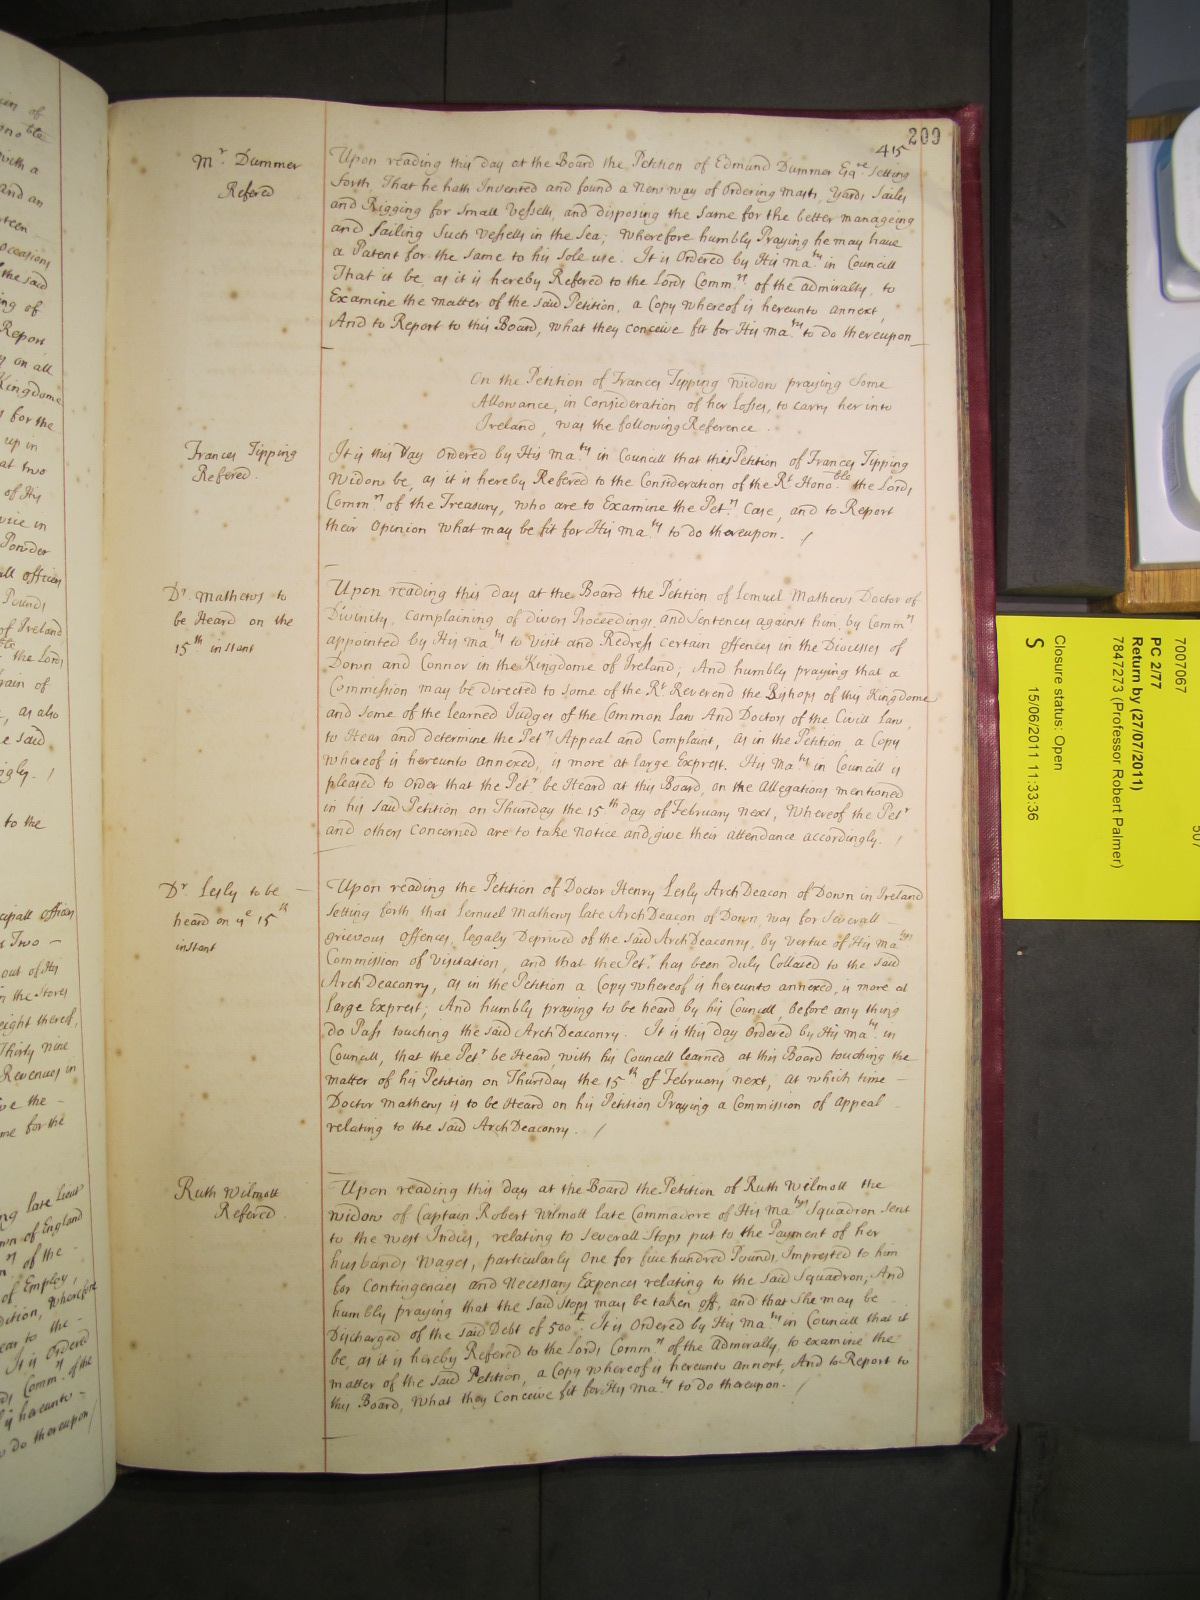 209
415
Mr. Dummer
Refered
Upon reading this day at the Board the Petition of Edmund Dummer Esqre. Setting
forth, That he hath Invented and found a New way of Ordering Masts, Yards Sailes
and Rigging for Small Vessells, and disposing the Same for the better manageing
and Sailing Such Vessells in the Sea; Wherefore humbly Praying he may have
a Patent for the Same to his Sole use. It is Ordered by His Maty. in Councill
That it be, as it is hereby Refered to the Lords Commrs. of the Admiralty, to
Examine the matter of the said Petition, a Copy whereof is hereunto annext,
And to Report to this Board, what they conceive fit for His Maty. to do thereupon
On the Petition of Frances Tipping Widow praying Some
Allowance, in Consideration of her Losses, to carry her into
Ireland, was the following Reference.
Frances Tipping
Refered.
It is this Day Ordered by His Maty. in Councill that this Petition of Frances Tipping
Widow be, as it is hereby Refered to the Consideration of the Rt. Honoble. the Lords
Commrs. of the Treasury, who are to Examine the Petrs. Case, and to Report
their Opinion what may be fit for His Maty. to do thereupon. /
Dr. Mathews to
be Heard on the
15th instant
Upon reading this day at the Board the Petition of Lemuel Mathews Doctor of
Divinity, complaining of divers Proceedings, and Sentences against him, by Commrs.
appointed by His Maty. to Visit and Redress certain offences in the Diocesses of
Down and Connor in the Kingdome of Ireland; And humbly praying that a
Commission may be directed to some of the Rt. Reverend the Bishops of this Kingdome
and some of the Learned Judges of the Common Law And Doctors of the Civill Law,
to Hear and determine the Petrs. Appeal and Complaint, as in the Petition, a Copy
whereof is hereunto Annexed, is more at large Exprest. His Maty. in Councill is
pleased to Order that the Petr. be Heard at this Board, on the Allegations mentioned
in his said Petition on Thursday the 15th day of February next, Whereof the Petr.
and others Concerned are to take Notice and give their attendance accordingly. /
Dr. Lesly to be
heard on ye 15th
instant
Upon reading the Petition of Doctor Henry Lesly ArchDeacon of Down in Ireland
Setting forth that Lemuel Mathews late ArchDeacon of Down, was for Severall
grievous offences, legaly Deprived of the said ArchDeaconry, by vertue of His Matys.
Commission of Visitation, and that the Petr. has been duly Collated to the said
ArchDeaconry, as in the Petition a Copy whereof is hereunto annexed, is more at
large Exprest; And humbly praying to be heard by his Councill, before any thing
do Pass touching the said ArchDeaconry. It is this day Ordered by His Maty. in
Councill, that the Petr. be Heard, with his Councell learned, at this Board touching the
matter of his Petition on Thursday the 15th of February next, at which time
Doctor Mathews is to be Heard on his Petition Praying a Commission of Appeal
relating to the said ArchDeaconry. /
Ruth Wilmott
Refered.
Upon reading this day at the Board the Petition of Ruth Wilmott the
Widow of Captain Robert Wilmott late Commadore of His Matys. Squadron Sent
to the West Indies, relating to Severall Stops put to the Payment of her
husbands Wages, particularly One for five hundred Pounds, Imprested to him
for Contingencies and Necessary Expences relating to the said Squadron, And
humbly praying that the said Stops may be taken off, and that She may be
Discharged of the said Debt of 500£. It is Ordered by His Maty. in Councill that it
be, as it is hereby Refered to the Lords Commrs. of the Admiralty, to examine the
matter of the said Petition, a Copy whereof is hereunto annext, And to Report to
this Board, What they Conceive fit for His Maty. to do thereupon. /
7007067
PC 2/77
Return by (27/07/2011)
7847273 (Professor Robert Palmer)
Closure status: Open
S 15/06/2011 11:33:36